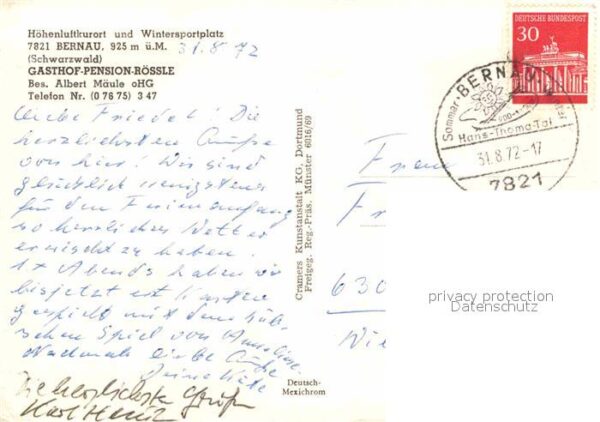 Höhenluftkurort und Wintersportplatz
7821 BERNAU, 925 m ü.M.
(Schwarzwald)
GASTHOF-PENSION-RÖSSLE
Bes. Albert Mäule oHG
Telefon Nr. (0 76 75) 3 47
31.8.72
Liebe Friedel! Die
herzlichsten Grüße
von hier! Wir sind
glücklich wenigstens
für den Ferienanfang
so herrliches Wetter
erwischt zu haben.
1x Abends haben wir
bisjetzt erst Karten
gespielt mit dem hüb-
schen Spiel von Anneliese.
Nochmals liebe Grüße
Deine
Die herzlichsten Grüße
Karl Heinz
Cramers Kunstanstalt KG, Dortmund
Freigeg. Reg.-Präs. Münster 6016/69
Deutsch-
Mexichrom
DEUTSCHE BUNDESPOST
30
Sommer- BERNAU Winter
900-1
Hans-Thoma-Tal
31.8.72-17
7821
Frau
630
privacy protection
Datenschutz